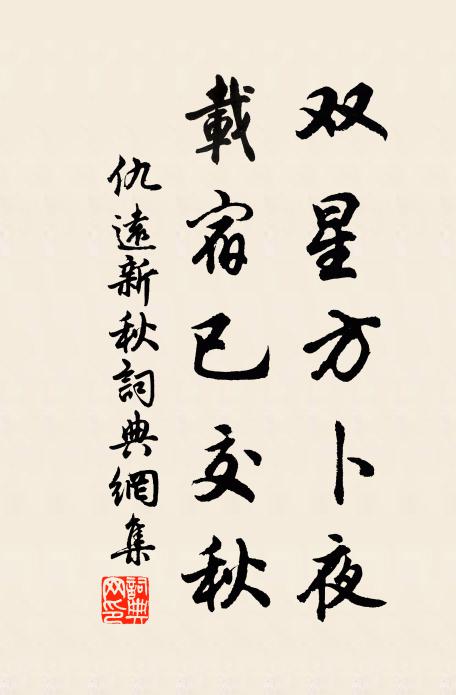 双星方卜夜
載宿已交秋
仇遠新秋詞典網集
詞典網印